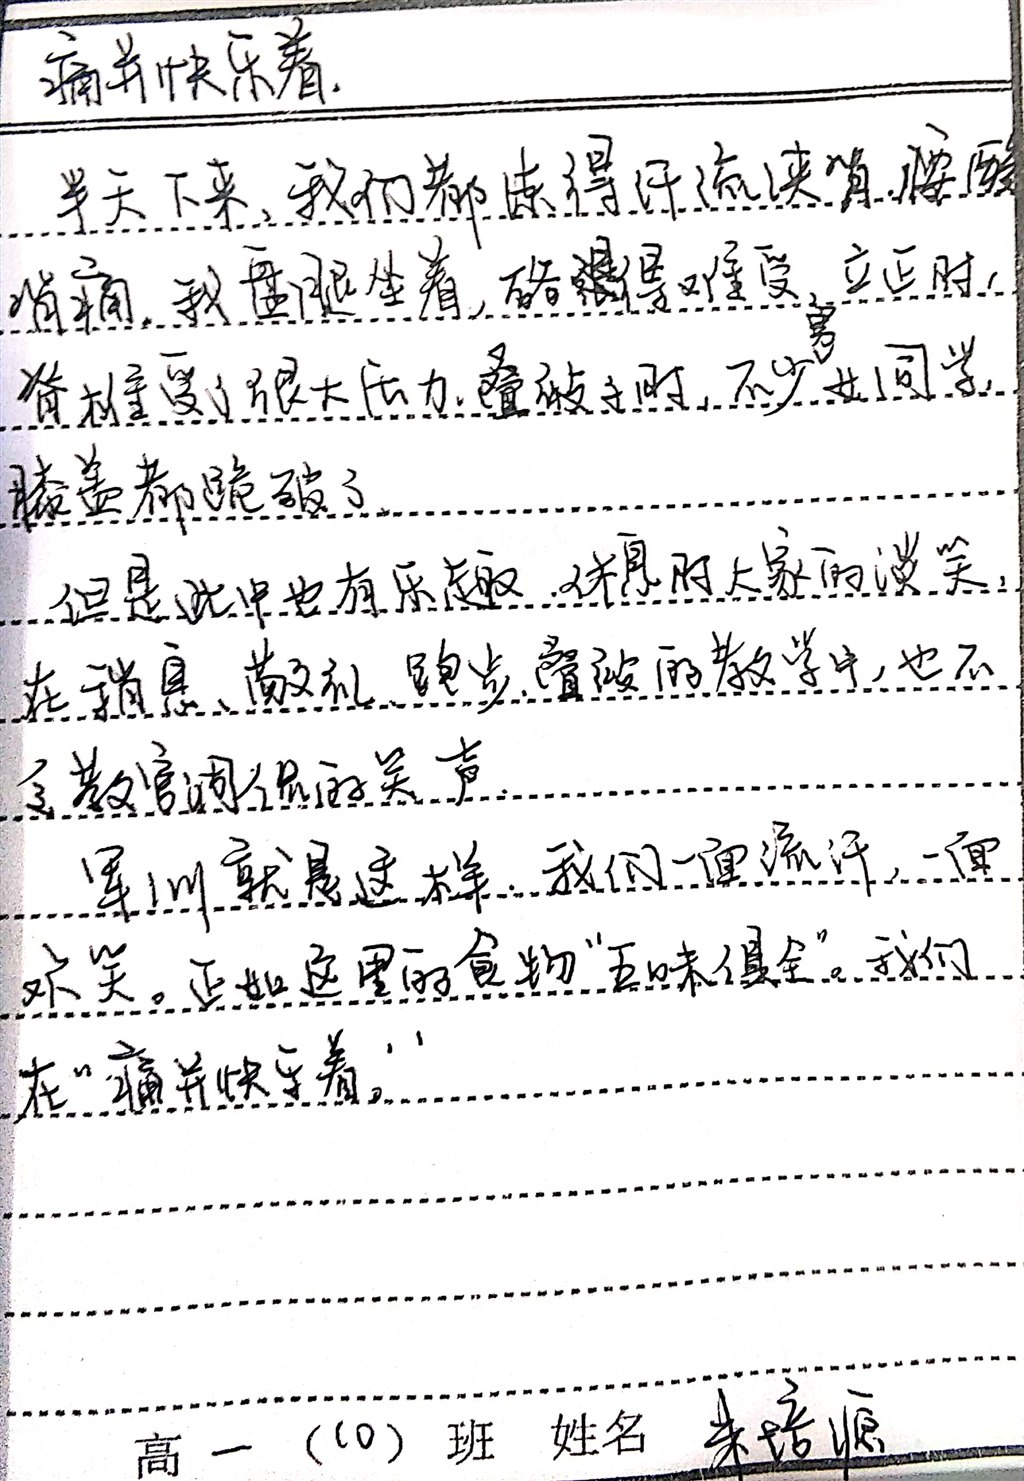 痛并快乐着.
半天下来,我们都练得汗流浃背.腰酸
背痛.我盘腿坐着,硌得难受,立正时,
脊椎受了很大压力.叠被子时,不少男女同学,
膝盖都跪破了.
但是此中也有乐趣.休息时大家的谈笑,
在稍息、敬礼、跑步.叠被的教学中,也不
乏教官调侃的笑声.
军训就是这样.我们一面流汗,一面
欢笑。正如这里的食物"五味俱全"。我们
在"痛并快乐着。"
高一(10)班 姓名 朱培源